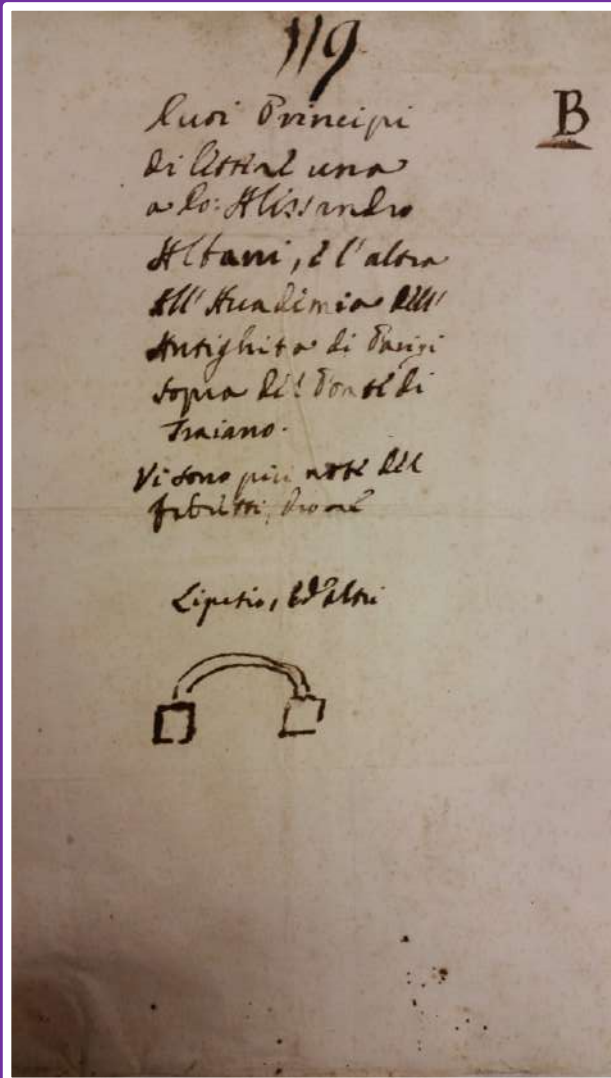 119
B
Principi
di lettere una
a Do: Alissandro
Albani, è l'altra
All' Accademia dell'
Antighita di Parigi
sopra del Ponte di
Traiano.
Vi sono più note del
Fabretti,
Lipsio, ed altri